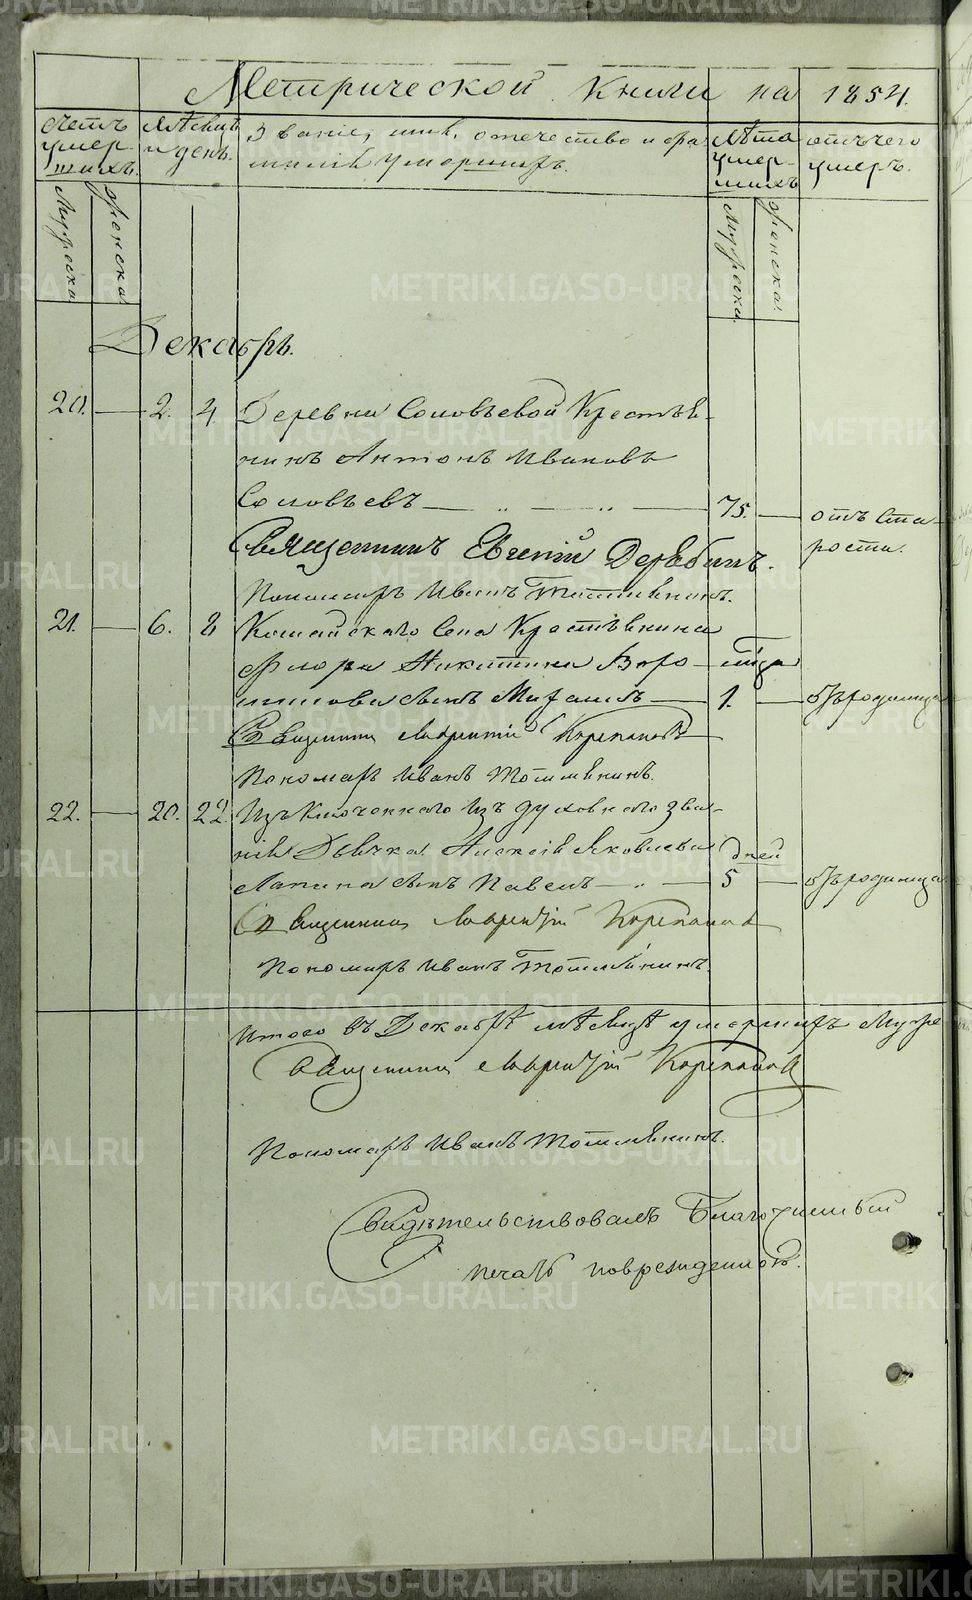 Метрической книги на 1854.
Счетъ умер-шихъ.
Мѣсяцъ и день.
Званіе, имя, отечество и фа-
милія умершихъ.
Лѣта умер-шихъ
отъ чего умеръ.
Мужеска
Женска
Мужеска.
Женска.
Декабрь.
20. 2. 4. Деревни Соловьевой Крестья-
нинъ Антонъ Ивановъ
Соловьевъ 75. отъ Ста-
рости.
Священникъ Евгеній Дерябинъ.
Пономарь Иванъ
21. 6. 8 Села Крестьянина
Флора Никитина
сынъ Михаилъ 1. отъ родимца
Священникъ Лаврентій Корепановъ
Пономарь Иванъ
22. 20. 22. Изъключеннаго изъ духовнаго зва-
нія Дьячка Алексія Яковлева дней
Лапина сынъ Павелъ 5 отъ родимца
Священникъ Лаврентій Корепановъ
Пономарь Иванъ
Итого въ Декабрѣ мѣсяцѣ умершихъ Муже
Священникъ Лаврентій Корепановъ
Пономарь Иванъ
Свидѣтельствовалъ Благочинный
печать повреждена.
METRIKI.GASO-URAL.RU